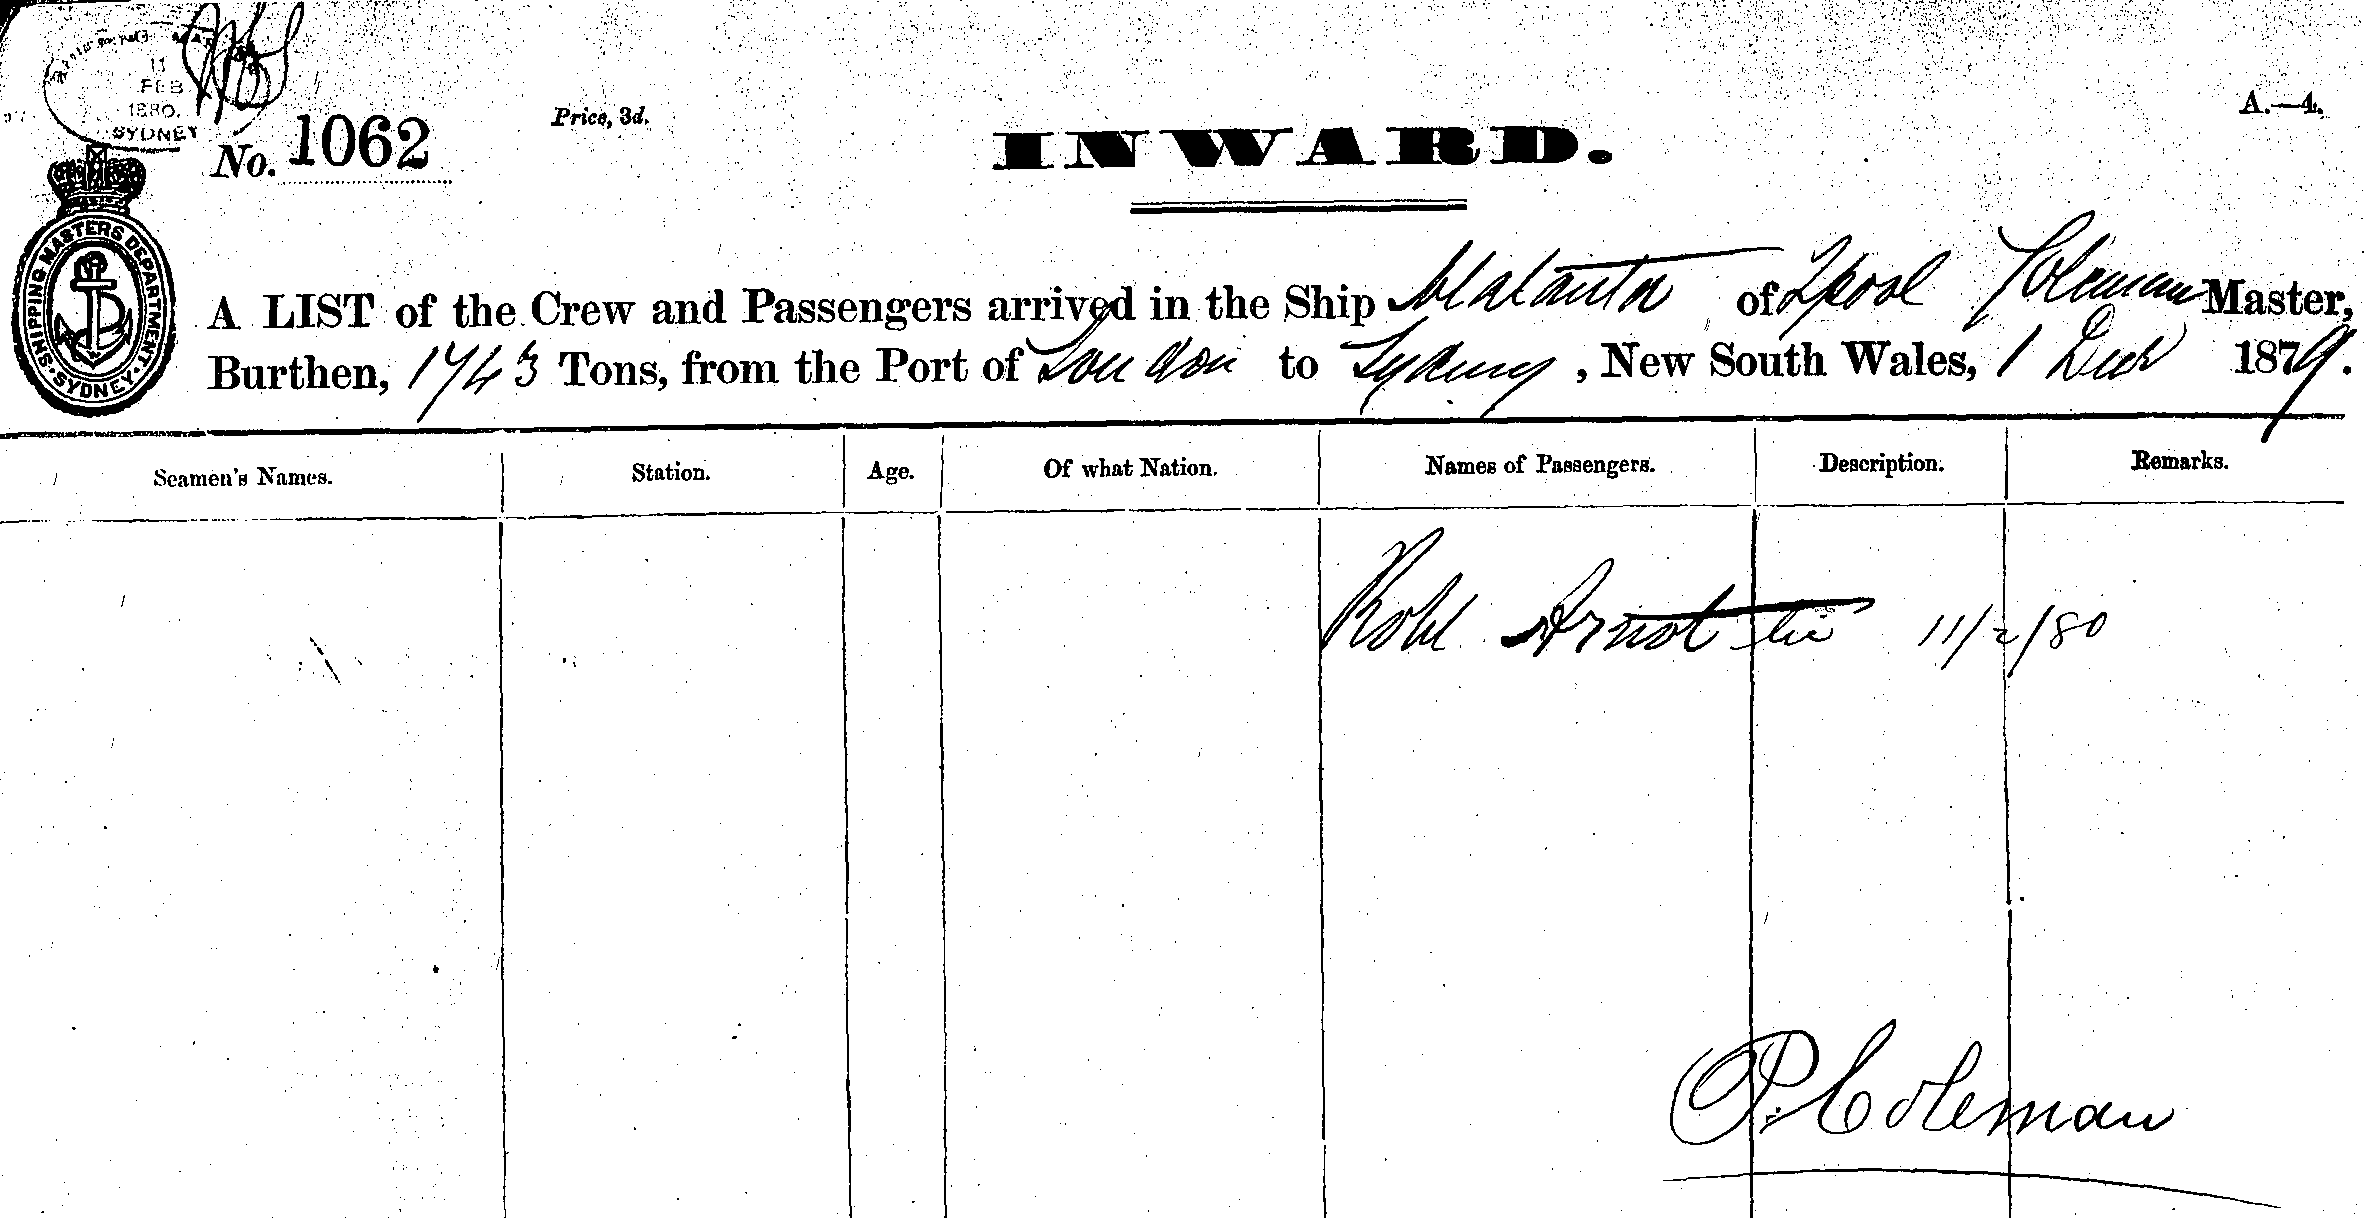 11
FEB
1880.
SYDNEY
No. 1062
Price, 3d.
INWARD.
A.—4.
SHIPPING MASTERS DEPARTMENT · SYDNEY ·
A LIST of the Crew and Passengers arrived in the Ship of Lpool Coleman Master,
Burthen, 1743 Tons, from the Port of London to Sydney, New South Wales, 1 Decr 1879.
Seamen's Names. Station. Age. Of what Nation. Names of Passengers. Description. Remarks.
Robt Arnot 11/2/80
P. Coleman